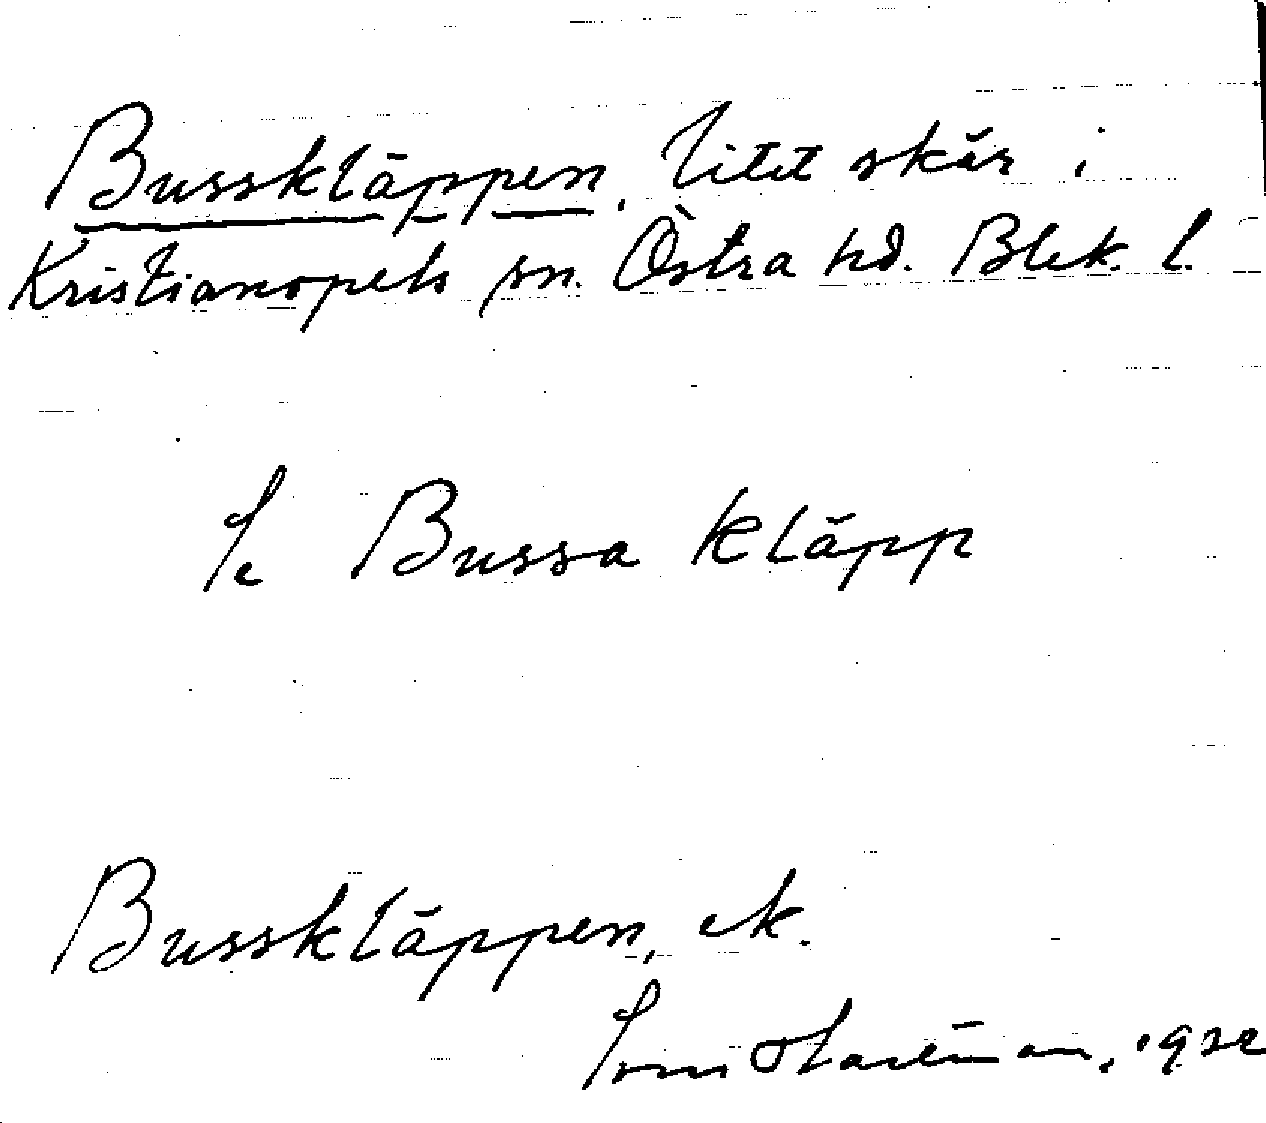 Busskläppen. Litet skär i
Kristianopels sn. Östra hd. Blek. l.
Bussa kläpp
Busskläppen, ek.
1922